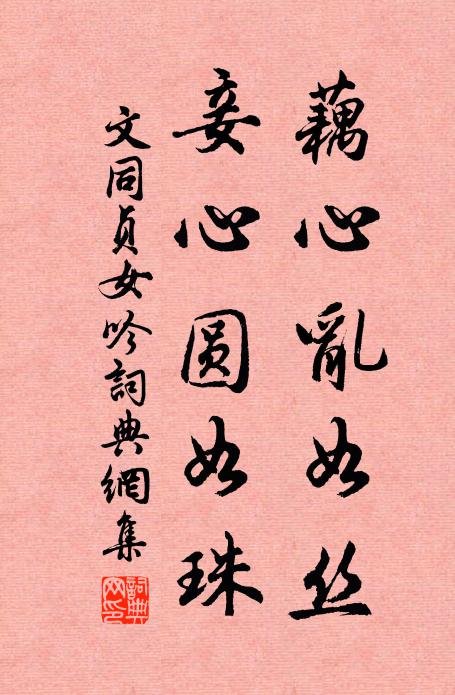 藕心亂如丝
妾心圆如珠
文同貞女吟詞典網集
詞典網印